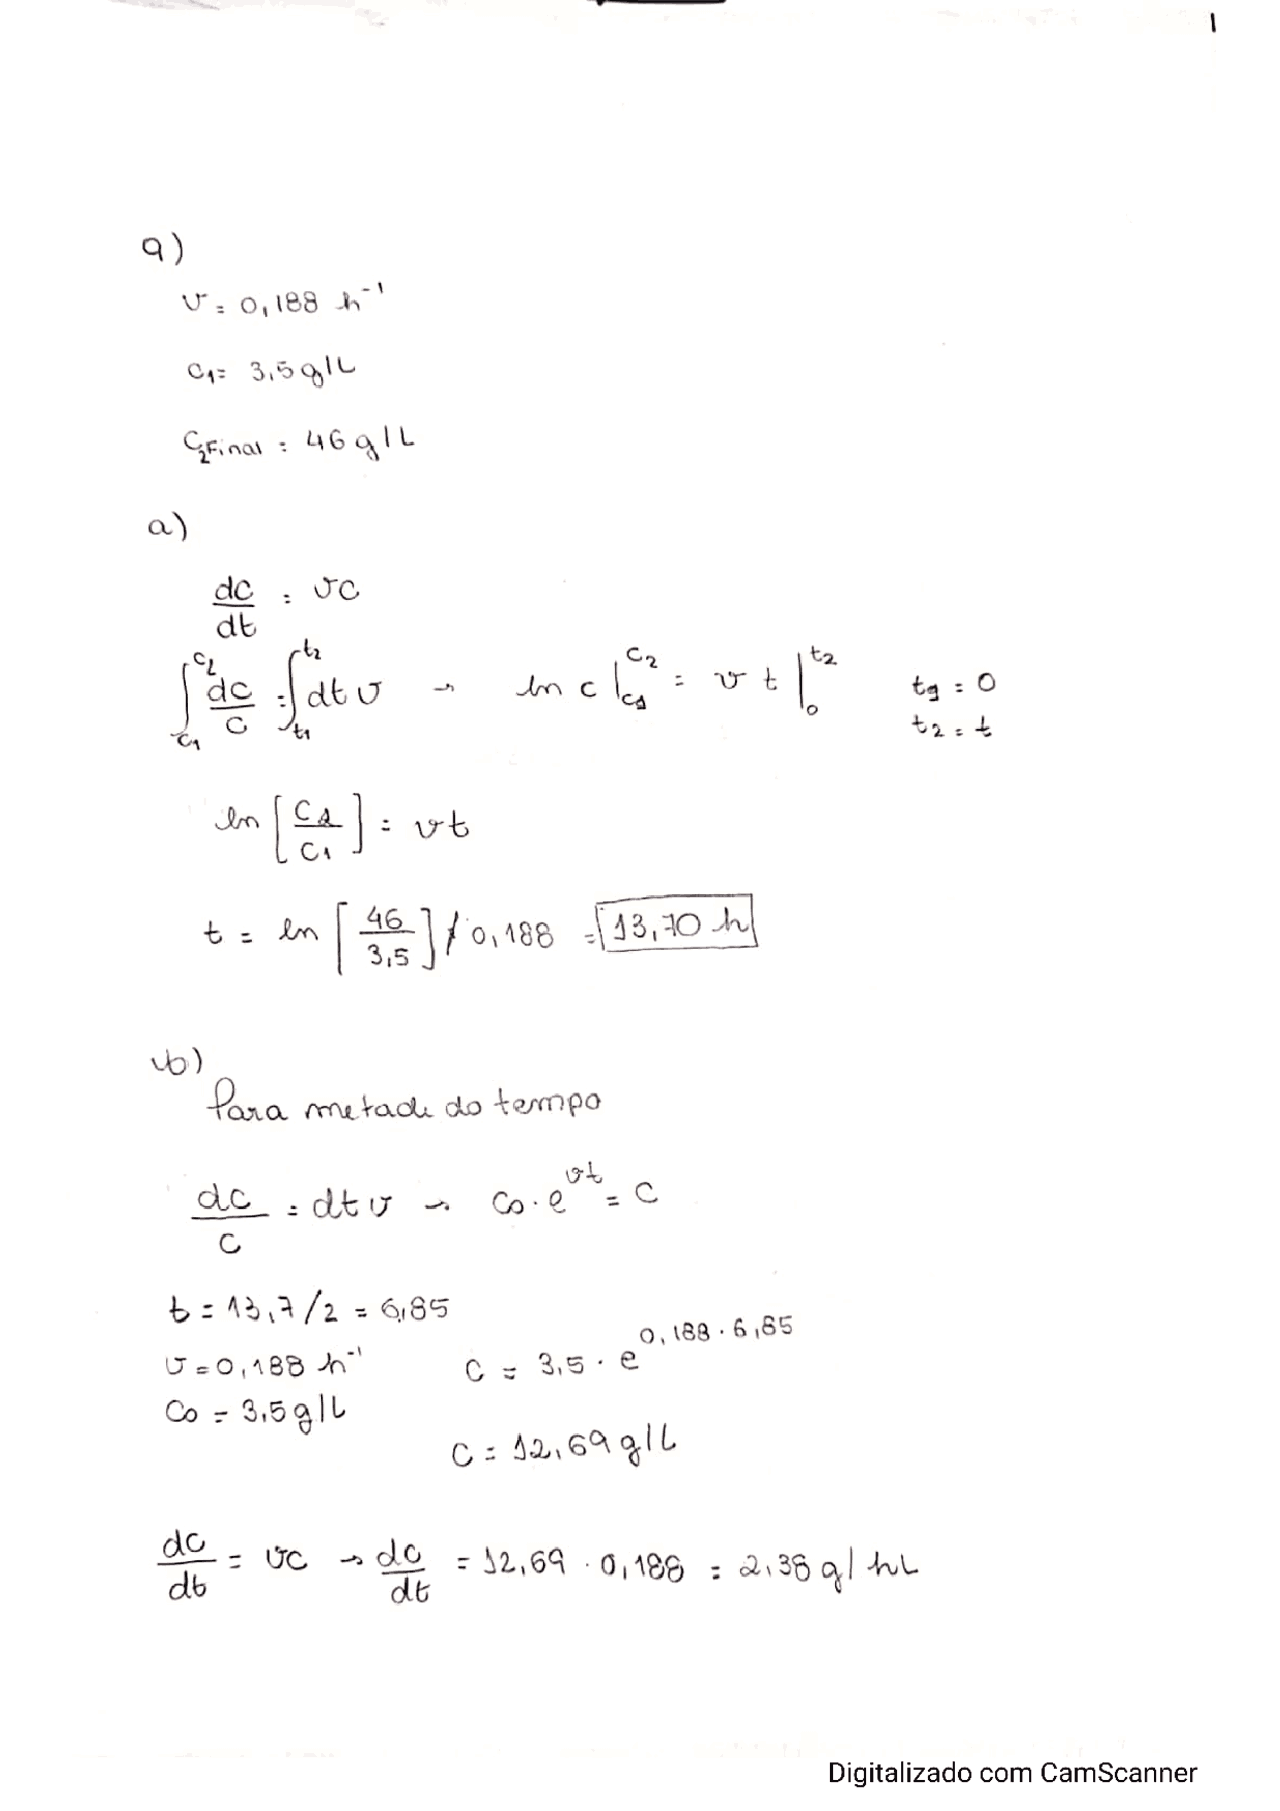 1
9)
v = 0,188 h⁻¹
C₁ = 3,5 g/L
C₂Final = 46 g/L
a)
dc/dt = vc
∫_{c₁}^{c₂} dc/c = ∫_{t₁}^{t₂} dt v → ln c |_{c₁}^{c₂} = v t |_0^{t₂} t₁ = 0
t₂ = t
ln [C₂/C₁] = vt
t = ln [46/3,5] / 0,188 = 13,70 h
b)
Para metade do tempo
dc/c = dt v → Co · e^{vt} = C
t = 13,7/2 = 6,85
v = 0,188 h⁻¹ C = 3,5 · e^{0,188 · 6,85}
Co = 3,5 g/L
C = 12,69 g/L
dc/dt = vc → dc/dt = 12,69 · 0,188 = 2,38 g/hL
Digitalizado com CamScanner